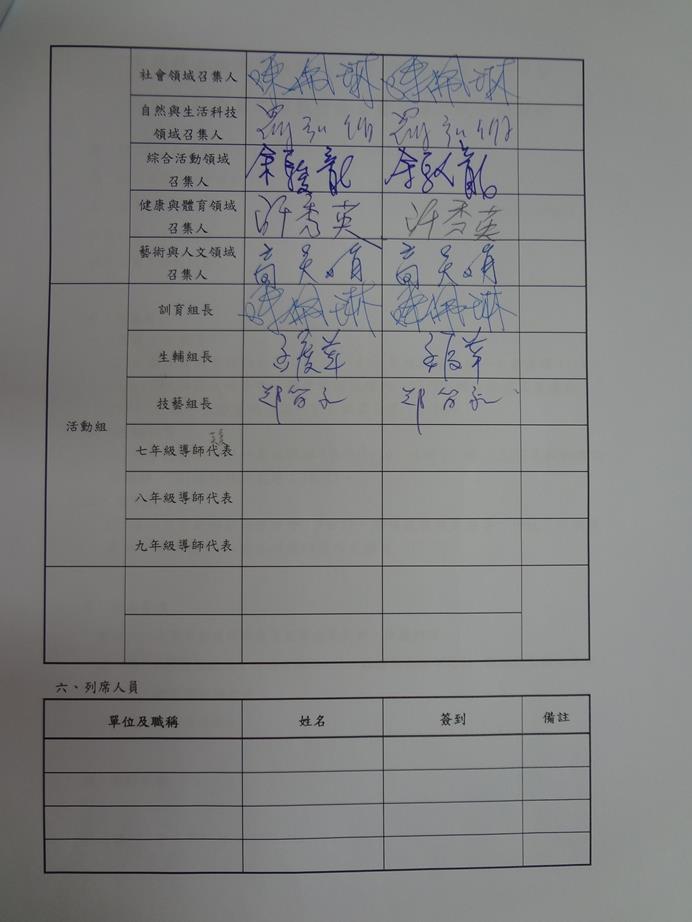 社會領域召集人 陳佩琳 陳佩琳
自然與生活科技
領域召集人
綜合活動領域
召集人 余駿龍 余駿龍
健康與體育領域
召集人 許秀英 許秀英
藝術與人文領域
召集人 高美娟 高美娟
訓育組長 陳佩琳 陳佩琳
生輔組長
技藝組長
活動組
七年級導師代表
八年級導師代表
九年級導師代表
六、列席人員
單位及職稱 姓名 簽到 備註